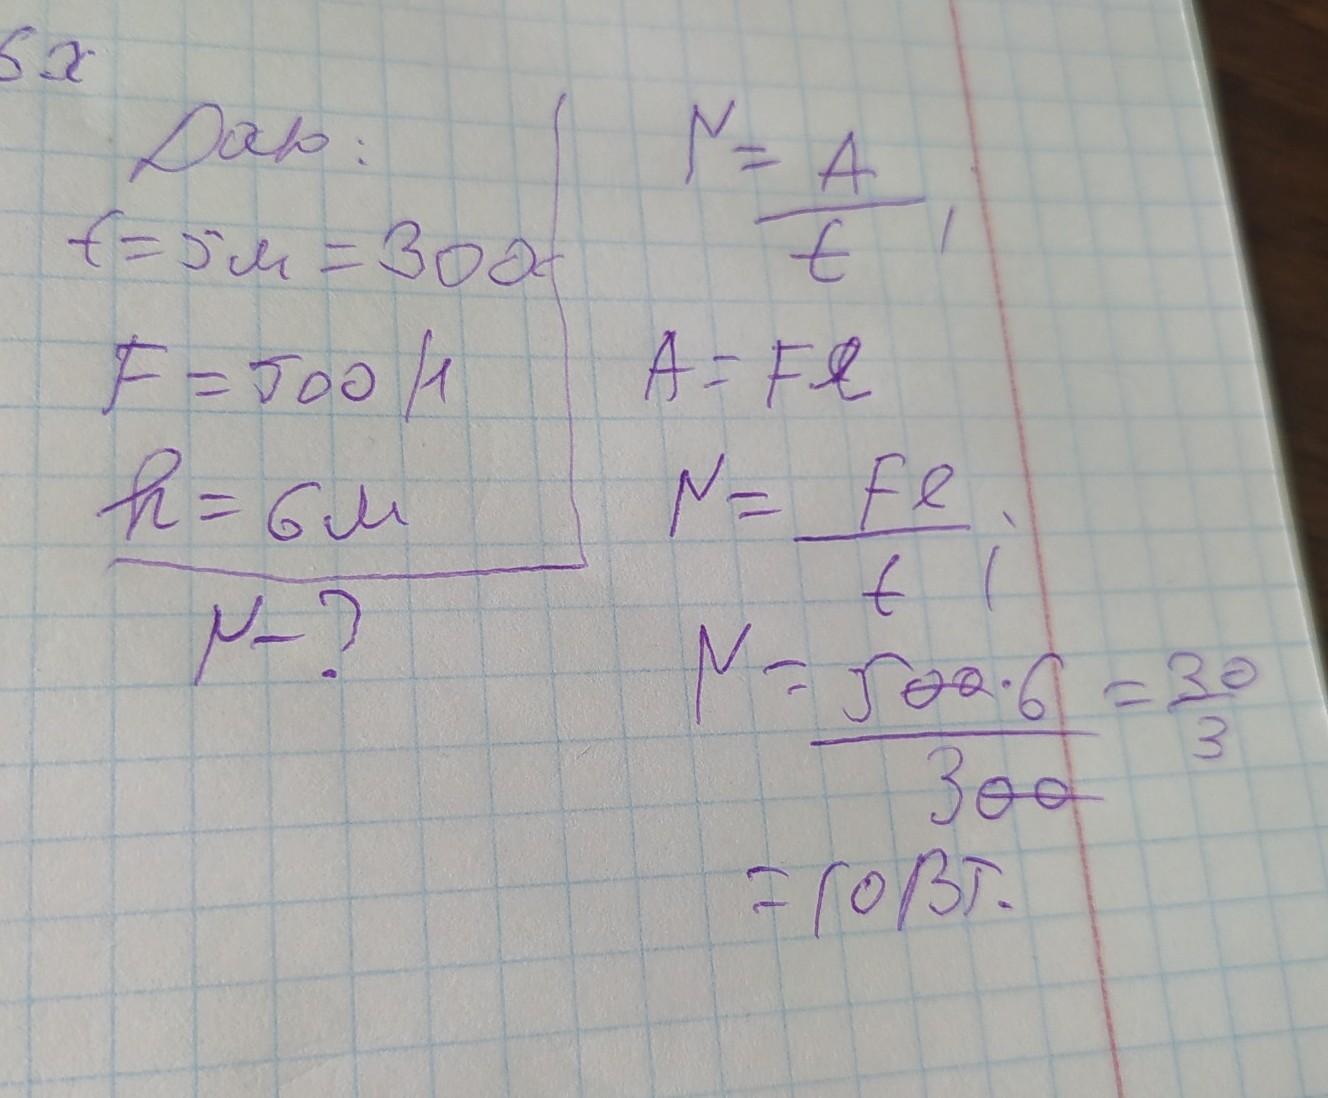 Дано:
t = 5м = 300с
F = 500 Н
h = 6м
N - ?
N = A / t ,
A = Fl
N = Fl / t ;
N = 500 · 6 / 300 = 30 / 3
= 10 Вт.